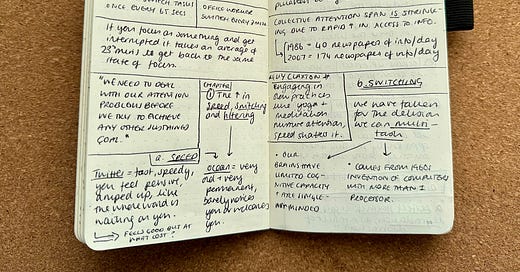 SWITCH TASKS
ONCE EVERY 65 SECS
OFFICE WORKER
SWITCH EVERY 3 MIN
If you focus on something and get
interrupted it takes an average of
23 mins to get back to the same
state of focus.
"WE NEED TO DEAL
WITH OUR ATTENTION
PROBLEMS BEFORE
WE TRY TO ACHIEVE
ANY OTHER SUSTAINED
GOAL."
CHAPTER
① The ↑ in
speed, switching
and filtering
a. SPEED
Twitter = fast, speedy,
you feel pensive,
amped up, like
the whole world is
waiting on you.
→ FEELS GOOD BUT AT
WHAT COST?
OCEAN = very
old + very
permanent,
barely notices
you & welcomes
you.
COLLECTIVE ATTENTION SPAN IS SHRINK-
ING DUE TO RAPID ↑ IN ACCESS TO INFO.
1986 = 40 newspapers of info/day
2007 = 174 newspapers of info/day
GUY CLAXTON →
Engaging in
slow practices
like yoga +
meditation
nurture attention,
speed shatters it.
b. SWITCHING
we have fallen
for the delusion
we can multi-
task
• OUR
BRAINS HAVE
LIMITED COG-
NITIVE CAPACITY
+ ARE SINGLE-
MINDED
• COMES FROM 1960s
INVENTION OF COMPUTERS
WITH MORE THAN 1
PROCESSOR.